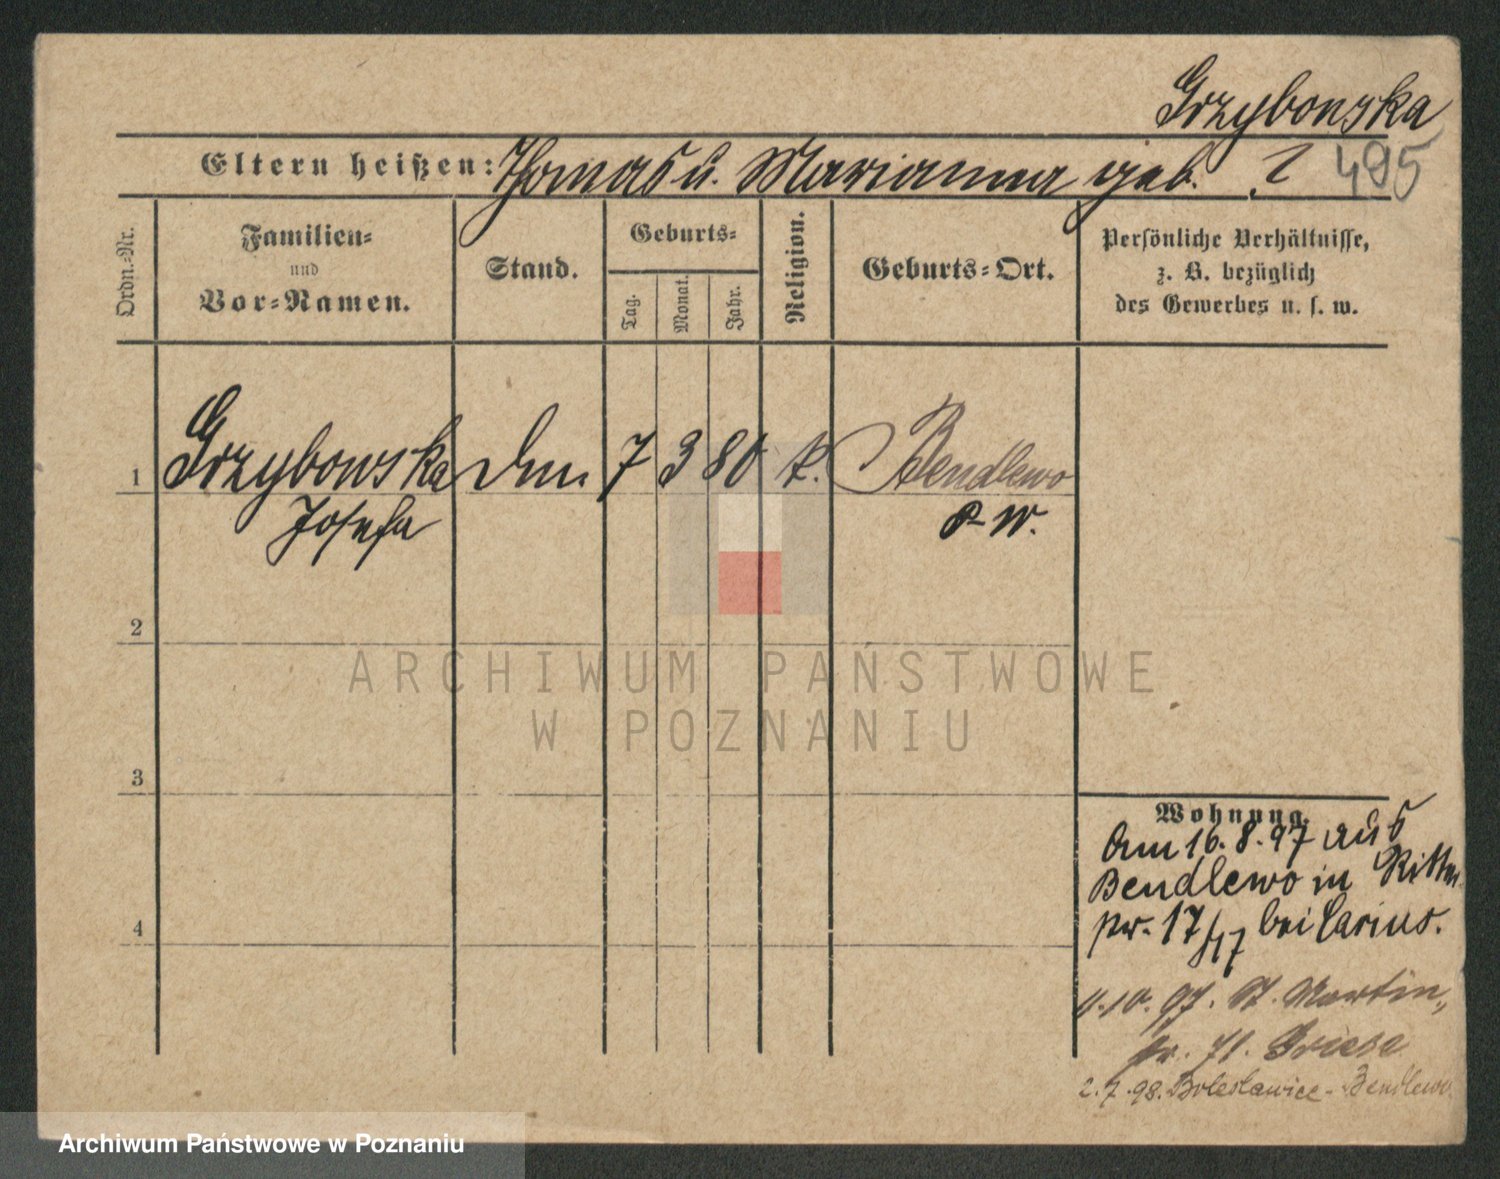 Grzybowska
Eltern heißen: Thomas u. Marianna geb. ? 495
Ordn.-Nr.
Familien-
und
Vor-Namen.
Stand.
Geburts-
Tag.
Monat.
Jahr.
Religion.
Geburts-Ort.
Persönliche Verhältnisse,
z. B. bezüglich
des Gewerbes u. s. w.
1 Grzybowska 7 3 80 k. Bendlewo
Josefa P. W.
2
3
4
Wohnung.
Am 16.8.97 aus
Bendlewo in Ritter
17/17 bei Carius.
4.10.97. St. Martin
71. Griese
2.7.98. Bolesławice - Bendlewo
ARCHIWUM PAŃSTWOWE
W POZNANIU
Archiwum Państwowe w Poznaniu